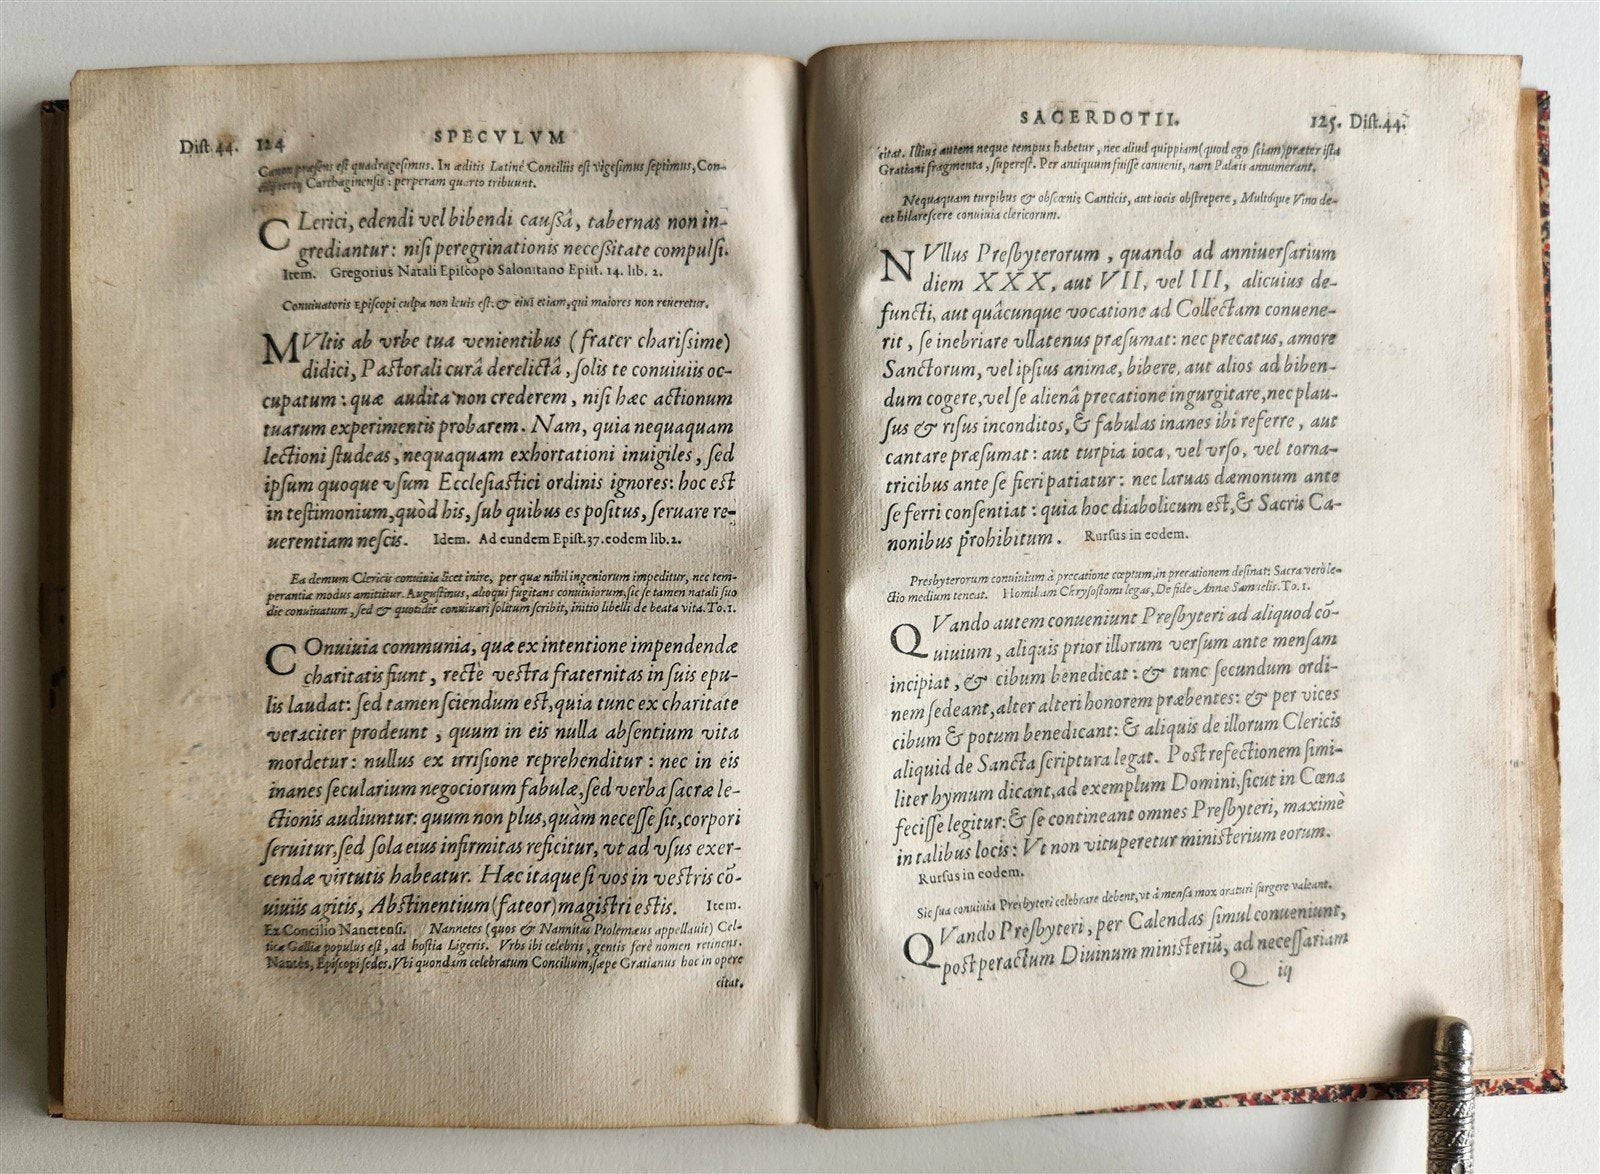 Dist. 44. 124 SPECVLVM
Canon præsens est quadragesimus. In æditis Latinè Concilijs est vigesimus septimus, Con-
Carthaginensis: perperam quarto tribuunt.
CLerici, edendi vel bibendi caussâ, tabernas non in-
grediantur: nisi peregrinationis necessitate compulsi.
Item. Gregorius Natali Episcopo Salonitano Epist. 14. lib. 2.
Conuiuatoris Episcopi culpa non leuis est: & eius etiam, qui maiores non reueretur.
MVltis ab vrbe tua venientibus (frater charissime)
didici, Pastorali curâ derelictâ, solis te conuiuiis oc-
cupatum: quæ audita non crederem, nisi hæc actionum
tuarum experimentis probarem. Nam, quia nequaquam
lectioni studeas, nequaquam exhortationi inuigiles, sed
ipsum quoque vsum Ecclesiastici ordinis ignores: hoc est
in testimonium, quòd his, sub quibus es positus, seruare re-
uerentiam nescis. Idem. Ad eundem Epist. 37. eodem lib. 2.
Ea demum Clericis conuiuia licet inire, per quæ nihil ingeniorum impeditur, nec tem-
perantiæ modus amittitur. Augustinus, alioqui fugitans conuiuiorum, sic se tamen natali suo
die conuiuatum, sed & quotidie conuiuari solitum scribit, initio libelli de beata vita. To. 1.
COnuiuia communia, quæ ex intentione impendendæ
charitatis fiunt, rectè vestra fraternitas in suis epu-
lis laudat: sed tamen sciendum est, quia tunc ex charitate
veraciter prodeunt, quum in eis nulla absentium vita
mordetur: nullus ex irrisione reprehenditur: nec in eis
inanes secularium negociorum fabulæ, sed verba sacræ le-
ctionis audiuntur: quum non plus, quàm necesse sit, corpori
seruitur, sed sola eius infirmitas reficitur, vt ad vsus exer-
cendæ virtutis habeatur. Hæc itaque si vos in vestris cō-
uiuiis agitis, Abstinentium (fateor) magistri estis. Item.
Ex Concilio Nanetensi. Nannetes (quos & Nannitas Ptolemæus appellauit) Cel-
ticæ Galliæ populus est, ad hostia Ligeris. Vrbs ibi celebris, gentis ferè nomen retinens.
Nantes, Episcopi sedes. Vbi quondam celebratum Concilium, sæpe Gratianus hoc in opere
citat.
SACERDOTII. 125. Dist. 44.
citat. Illius autem neque tempus habetur, nec aliud quippiam (quod ego sciam) præter ista
Gratiani fragmenta, superest. Per antiquum fuisse conuenit, nam Palæis annumerant.
Nequaquam turpibus & obscœnis Canticis, aut iocis obstrepere, Multóque Vino de-
cet hilarescere conuiuia clericorum.
NVllus Presbyterorum, quando ad anniuersarium
diem XXX, aut VII, vel III, alicuius de-
functi, aut quâcunque vocatione ad Collectam conuene-
rit, se inebriare vllatenus præsumat: nec precatus, amore
Sanctorum, vel ipsius animæ, bibere, aut alios ad biben-
dum cogere, vel se alienâ precatione ingurgitare, nec plau-
sus & risus inconditos, & fabulas inanes ibi referre, aut
cantare præsumat: aut turpia ioca, vel vrso, vel torna-
tricibus ante se fieri patiatur: nec laruas dæmonum ante
se ferri consentiat: quia hoc diabolicum est, & Sacris Ca-
nonibus prohibitum. Rursus in eodem.
Presbyterorum conuiuium à precatione cœptum, in precationem desinat: Sacra verò le-
ctio medium teneat. Homiliam Chrysostomi legas, De fide Annæ Samuelis. To. 1.
QVando autem conueniunt Presbyteri ad aliquod cō-
uiuium, aliquis prior illorum versum ante mensam
incipiat, & cibum benedicat: & tunc secundum ordi-
nem sedeant, alter alteri honorem præbentes: & per vices
cibum & potum benedicant: & aliquis de illorum Clericis
aliquid de Sancta scriptura legat. Post refectionem simi-
liter hymum dicant, ad exemplum Domini, sicut in Cœna
fecisse legitur: & se contineant omnes Presbyteri, maximè
in talibus locis: Vt non vituperetur ministerium eorum.
Rursus in eodem.
Sic sua conuiuia Presbyteri celebrare debent, vt à mensa mox oraturi surgere valeant.
QVando Presbyteri, per Calendas simul conueniunt,
post peractum Diuinum ministeriū, ad necessariam
Q iij